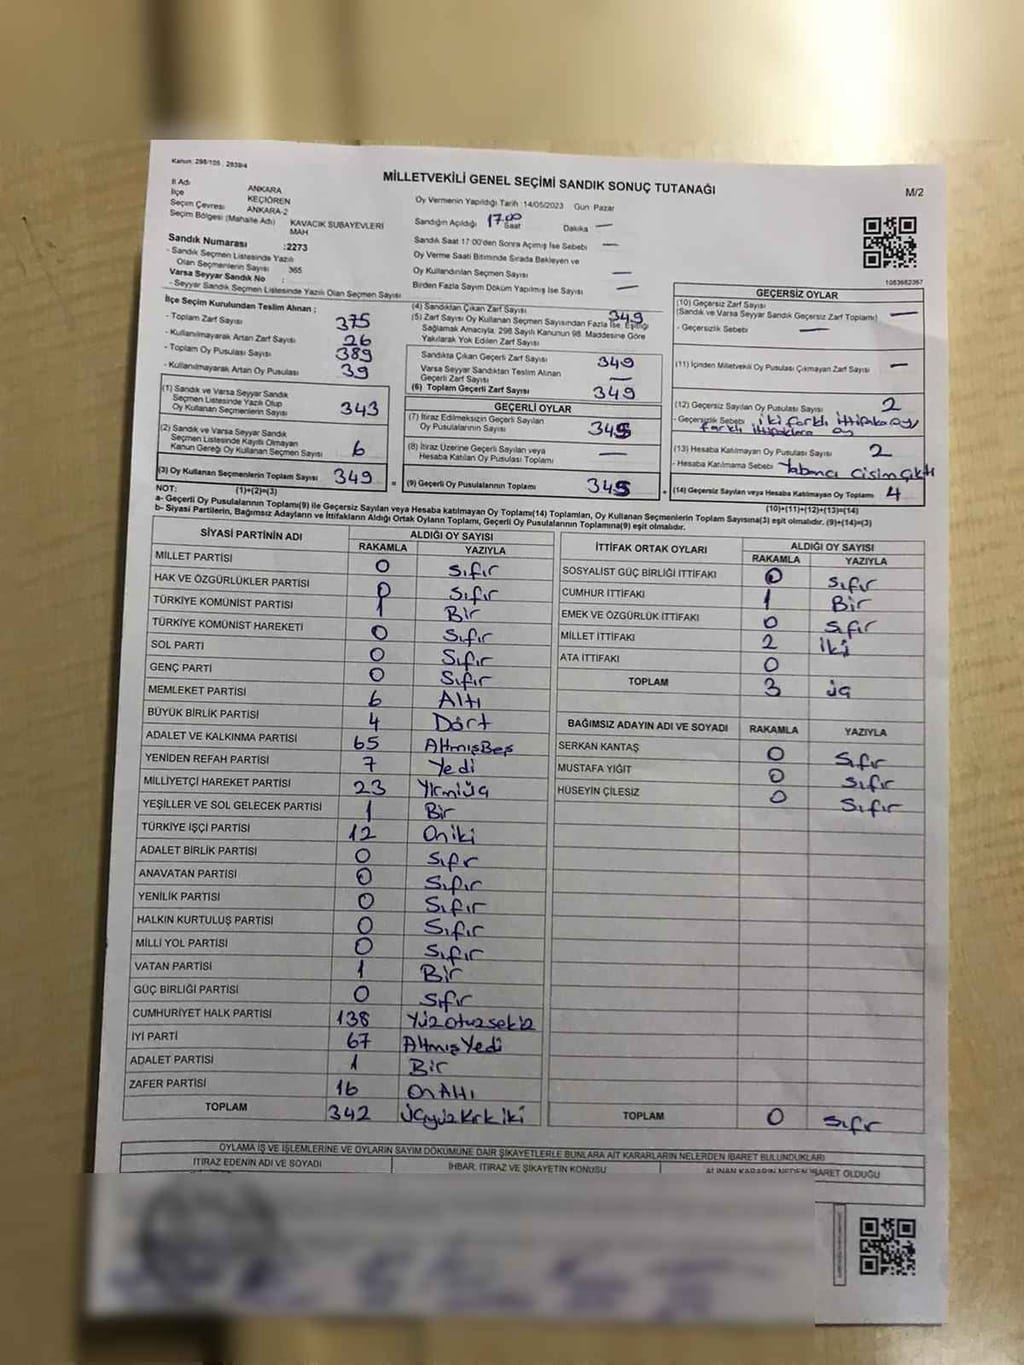 Kanun: 298/105 2839/4
MİLLETVEKİLİ GENEL SEÇİMİ SANDIK SONUÇ TUTANAĞI
M/2
İl Adı ANKARA
İlçe KEÇİÖREN
Seçim Çevresi ANKARA-2
Seçim Bölgesi (Mahalle Adı) KAVACIK SUBAYEVLERİ MAH
Sandık Numarası :2273
- Sandık Seçmen Listesinde Yazılı
Olan Seçmenlerin Sayısı 365
Varsa Seyyar Sandık No :
- Seyyar Sandık Seçmen Listesinde Yazılı Olan Seçmen Sayısı
Oy Vermenin Yapıldığı Tarih :14/05/2023 Gün :Pazar
Sandığın Açıldığı 17.00 Saat Dakika —
Sandık Saat 17:00'den Sonra Açmış İse Sebebi —
Oy Verme Saati Bitiminde Sırada Bekleyen ve
Oy Kullandırılan Seçmen Sayısı —
Birden Fazla Sayım Döküm Yapılmış İse Sayısı —
1083682367
İlçe Seçim Kurulundan Teslim Alınan ;
- Toplam Zarf Sayısı 375
- Kullanılmayarak Artan Zarf Sayısı 26
- Toplam Oy Pusulası Sayısı 389
- Kullanılmayarak Artan Oy Pusulası 39
(1) Sandık ve Varsa Seyyar Sandık
Seçmen Listesinde Yazılı Olup
Oy Kullanan Seçmenlerin Sayısı 343
(2) Sandık ve Varsa Seyyar Sandık
Seçmen Listesinde Kayıtlı Olmayan
Kanun Gereği Oy Kullanan Seçmen Sayısı 6
(3) Oy Kullanan Seçmenlerin Toplam Sayısı 349
(1)+(2)=(3)
(4) Sandıktan Çıkan Zarf Sayısı 349
(5) Zarf Sayısı Oy Kullanan Seçmen Sayısından Fazla İse, Eşitliği
Sağlamak Amacıyla, 298 Sayılı Kanunun 98. Maddesine Göre
Yakılarak Yok Edilen Zarf Sayısı
Sandıkta Çıkan Geçerli Zarf Sayısı 349
Varsa Seyyar Sandıktan Teslim Alınan
Geçerli Zarf Sayısı —
(6) Toplam Geçerli Zarf Sayısı 349
GEÇERLİ OYLAR
(7) İtiraz Edilmeksizin Geçerli Sayılan
Oy Pusulalarının Sayısı 345
(8) İtiraz Üzerine Geçerli Sayılan veya
Hesaba Katılan Oy Pusulası Toplamı —
(9) Geçerli Oy Pusulalarının Toplamı 345
GEÇERSİZ OYLAR
(10) Geçersiz Zarf Sayısı
(Sandık ve Varsa Seyyar Sandık Geçersiz Zarf Toplamı) —
- Geçersizlik Sebebi —
(11) İçinden Milletvekili Oy Pusulası Çıkmayan Zarf Sayısı —
(12) Geçersiz Sayılan Oy Pusulası Sayısı 2
- Geçersizlik Sebebi iki farklı ittifaka oy/
farklı ittifaklara oy
(13) Hesaba Katılmayan Oy Pusulası Sayısı 2
- Hesaba Katılmama Sebebi Yabancı Cisim Çıktı
(14) Geçersiz Sayılan veya Hesaba Katılmayan Oy Toplamı 4
(10)+(11)+(12)+(13)=(14)
NOT:
a- Geçerli Oy Pusulalarının Toplamı(9) ile Geçersiz Sayılan veya Hesaba katılmayan Oy Toplamı(14) Toplamları, Oy Kullanan Seçmenlerin Toplam Sayısına(3) eşit olmalıdır. (9)+(14)=(3)
b- Siyasi Partilerin, Bağımsız Adayların ve İttifakların Aldığı Ortak Oyların Toplamı, Geçerli Oy Pusulalarının Toplamına(9) eşit olmalıdır.
SİYASİ PARTİNİN ADI ALDIĞI OY SAYISI
RAKAMLA YAZIYLA
MİLLET PARTİSİ 0 Sıfır
HAK VE ÖZGÜRLÜKLER PARTİSİ 0 Sıfır
TÜRKİYE KOMÜNİST PARTİSİ 1 Bir
TÜRKİYE KOMÜNİST HAREKETİ 0 Sıfır
SOL PARTİ 0 Sıfır
GENÇ PARTİ 0 Sıfır
MEMLEKET PARTİSİ 6 Altı
BÜYÜK BİRLİK PARTİSİ 4 Dört
ADALET VE KALKINMA PARTİSİ 65 AltmışBeş
YENİDEN REFAH PARTİSİ 7 Yedi
MİLLİYETÇİ HAREKET PARTİSİ 23 Yirmiüç
YEŞİLLER VE SOL GELECEK PARTİSİ 1 Bir
TÜRKİYE İŞÇİ PARTİSİ 12 Oniki
ADALET BİRLİK PARTİSİ 0 Sıfır
ANAVATAN PARTİSİ 0 Sıfır
YENİLİK PARTİSİ 0 Sıfır
HALKIN KURTULUŞ PARTİSİ 0 Sıfır
MİLLİ YOL PARTİSİ 0 Sıfır
VATAN PARTİSİ 1 Bir
GÜÇ BİRLİĞİ PARTİSİ 0 Sıfır
CUMHURİYET HALK PARTİSİ 138 Yüzotuzsekiz
İYİ PARTİ 67 AltmışYedi
ADALET PARTİSİ 1 Bir
ZAFER PARTİSİ 16 OnAltı
TOPLAM 342 Üçyüzkırkiki
İTTİFAK ORTAK OYLARI ALDIĞI OY SAYISI
RAKAMLA YAZIYLA
SOSYALİST GÜÇ BİRLİĞİ İTTİFAKI 0 Sıfır
CUMHUR İTTİFAKI 1 Bir
EMEK VE ÖZGÜRLÜK İTTİFAKI 0 Sıfır
MİLLET İTTİFAKI 2 İki
ATA İTTİFAKI 0
TOPLAM 3 üç
BAĞIMSIZ ADAYIN ADI VE SOYADI RAKAMLA YAZIYLA
SERKAN KANTAŞ 0 Sıfır
MUSTAFA YİĞİT 0 Sıfır
HÜSEYİN ÇİLESİZ 0 Sıfır
TOPLAM 0 Sıfır
OYLAMA İŞ VE İŞLEMLERİNE VE OYLARIN SAYIM DÖKÜMÜNE DAİR ŞİKAYETLERLE BUNLARA AİT KARARLARIN NELERDEN İBARET BULUNDUKLARI
İTİRAZ EDENİN ADI VE SOYADI İHBAR, İTİRAZ VE ŞİKAYETİN KONUSU ALINAN KARARIN NEDEN İBARET OLDUĞU